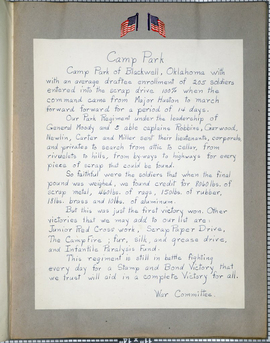 Camp Park
Camp Park of Blackwell, Oklahoma with
with an average draftee enrollment of 205 soldiers
entered into the scrap drive 100% when the
command came from Major Huston to march
forward forward for a period of 14 days.
Our Park Regiment under the leadership of
General Moody and 5 able captains Robbins, Garwood,
Newlin, Carter and Miller sent their lieutenants, corporals,
and privates to search from attic to cellar, from
rivulets to hills, from byways to highways for every
piece of scrap that could be found.
So faithful were the soldiers that when the final
pound was weighed, we found credit for lbs. of
scrap metal, lbs. of rags, 150lbs. of rubber,
lbs. brass and lbs. of aluminum.
But this was just the first victory won. Other
victories that we may add to our list are:
Junior Red Cross work, Scrap Paper Drive,
The Campfire; fur, silk, and grease drive,
and Infantile Paralysis Fund.
This regiment is still in battle fighting
every day for a Stamp and Bond Victory that
we trust will aid in a complete Victory for all.
War Committee.